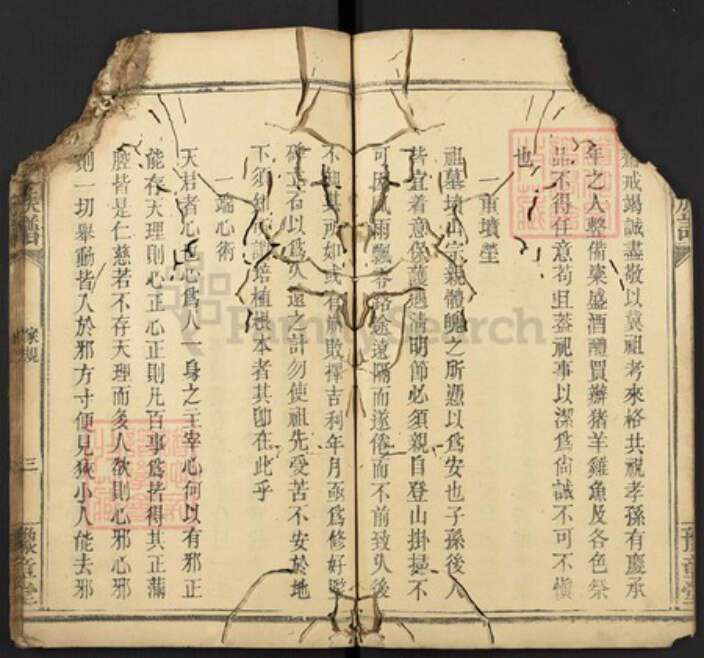 齋戒竭誠盡敬以冀祖考來格共視孝孫有慶承
年之人整備粢盛酒醴買辦猪羊雞魚及各色祭
品不得任意苟且葢祀事以潔爲尙誠不可不愼
也
一重墳塋
祖墓墳山宗親體魄之所憑以爲安也子孫後人
皆宜着意保護遇淸明節必須親自登山掛掃不
可因風雨飄零路途遠隔而遂倦而不前致久後
不知其所如或有崩敗擇吉利年月亟爲修好
碑立石以爲久遠之計勿使祖先受苦不安於地
下須知所謂培植根本者其卽在此乎
一端心術
天君者心也心爲人一身之主宰心何以有邪正
能存天理則心正心正則凡百事爲皆得其正滿
腔皆是仁慈若不存天理而多人欲則心邪心邪
則一切舉動皆入於邪方寸便見狹小人能去邪
族譜
家規
三
豫章堂
FamilySearch